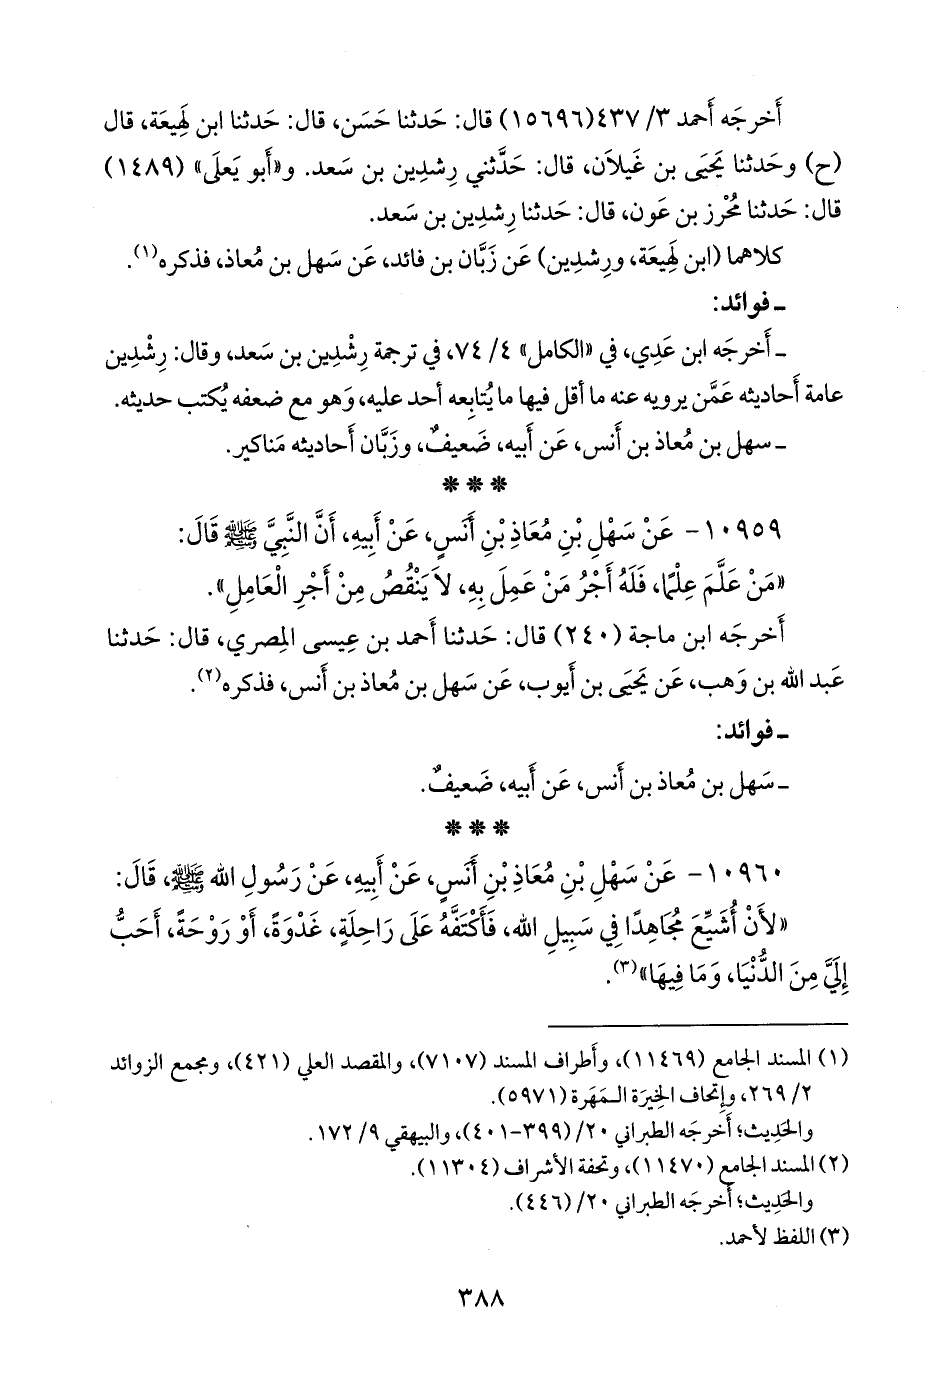 أَخرجَه أَحمد ٣/ ٤٣٧(١٥٦٩٦) قال: حَدثنا حَسَن، قال: حَدثنا ابن لَهِيعَة، قال
(ح) وحَدثنا يَحيَى بن غَيلاَن، قال: حَدَّثني رِشدِين بن سَعد. و«أَبو يَعلَى» (١٤٨٩)
قال: حَدثنا مُحْرِز بن عَون، قال: حَدثنا رِشدِين بن سَعد.
كلاهما (ابن لَهِيعَة، ورِشدِين) عَن زَبَّان بن فائد، عَن سَهل بن مُعاذ، فذكره(١).
ـ فوائد:
ـ أَخرجَه ابن عَدِي، في «الكامل» ٤/ ٧٤، في ترجمة رِشْدِين بن سَعد، وقال: رِشْدِين
عامة أَحاديثه عَمَّن يرويه عنه ما أقل فيها ما يُتابِعه أحد عليه، وَهو مع ضعفه يُكتب حديثه.
ـ سهل بن مُعاذ بن أَنس، عَن أَبيه، ضَعيفٌ، وزَبَّان أَحاديثه مَناكير.
* * *
١٠٩٥٩- عَنْ سَهْلِ بْنِ مُعَاذِ بْنِ أَنَسٍ، عَنْ أَبِيهِ، أَنَّ النَّبِيَّ ﷺ قَالَ:
«مَنْ عَلَّمَ عِلْمًا، فَلَهُ أَجْرُ مَنْ عَمِلَ بِهِ، لاَ يَنْقُصُ مِنْ أَجْرِ الْعَامِلِ».
أَخرجَه ابن ماجة (٢٤٠) قال: حَدثنا أَحمد بن عِيسى المِصري، قال: حَدثنا
عَبد الله بن وَهب، عَن يَحيَى بن أَيوب، عَن سَهل بن مُعاذ بن أَنس، فذكره(٢).
ـ فوائد:
ـ سَهل بن مُعاذ بن أَنس، عَن أَبيه، ضَعيفٌ.
* * *
١٠٩٦٠- عَنْ سَهْلِ بْنِ مُعَاذِ بْنِ أَنَسٍ، عَنْ أَبِيهِ، عَنْ رَسُولِ الله ﷺ، قَالَ:
«لأَنْ أُشَيِّعَ مُجَاهِدًا فِي سَبِيلِ الله، فَأَكْتَفَّهُ عَلَى رَاحِلَةٍ، غَدْوَةً، أَوْ رَوْحَةً، أَحَبُّ
إِلَيَّ مِنَ الدُّنْيَا، وَمَا فِيهَا»(٣).
(١) المسند الجامع (١١٤٦٩)، وأَطراف المسند (٧١٠٧)، والمقصد العلي (٤٢١)، ومجمع الزوائد
٢/ ٢٦٩، وإِتحاف الخِيرَة المَهَرة (٥٩٧١).
والحَدِيث؛ أَخرجَه الطبراني ٢٠/ (٣٩٩-٤٠١)، والبيهقي ٩/ ١٧٢.
(٢) المسند الجامع (١١٤٧٠)، وتحفة الأشراف (١١٣٠٤).
والحَدِيث؛ أَخرجَه الطبراني ٢٠/ (٤٤٦).
(٣) اللفظ لأحمد.
٣٨٨